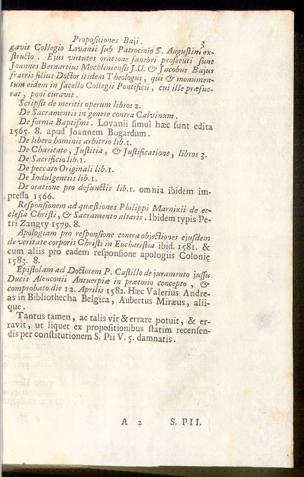 Propositiones Baji. 3
gavit Collegio Lovanii sub Patrocinio S. Augustini ex-
structo. Ejus virtutes oratione funebri prosecuti sunt
Joannes Bernartius Mechliniensis J.U. & Jacobus Bajus
fratris filius Doctor itidem Theologus, qui & monumen-
tum eidem in sacello Collegii Pontificii, cui ille præfue-
rat, poni curavit.
Scripsit de meritis operum libros 2.
De Sacramentis in genere contra Calvinum.
De forma Baptismi. Lovanii simul hæc sunt edita
1565. 8. apud Joannem Bogardum.
De libero hominis arbitrio lib.1.
De Charitate, Justitia, & Justificatione, libros 3.
De Sacrificio lib.1.
De peccato Originali lib.1.
De Indulgentiis lib.1.
De oratione pro defunctis lib.1. omnia ibidem im-
pressa 1566.
Responsionem ad quæstiones Philippi Marnixii de ec-
clesia Christi, & Sacramento altaris. Ibidem typis Pe-
tri Zangry 1579. 8.
Apologiam pro responsione contra objectiones ejusdem
de veritate corporis Christi in Eucharistia ibid. 1581. &
cum aliis pro eadem responsione apologiis Coloniæ
1583. 8.
Epistolam ad Doctorem P. Castillo de juramento jussu
Ducis Alenconii Antuerpiæ in prætorio concepto, &
comprobato die 12. Aprilis 1582. Hæc Valerius Andre-
as in Bibliothecha Belgica, Aubertus Miræus, alii-
que.
Tantus tamen, ac talis vir & errare potuit, & er-
ravit, ut liquet ex propositionibus statim recensen-
dis per constitutionem S. Pii V. 5. damnatis.
A 2 S. PII.